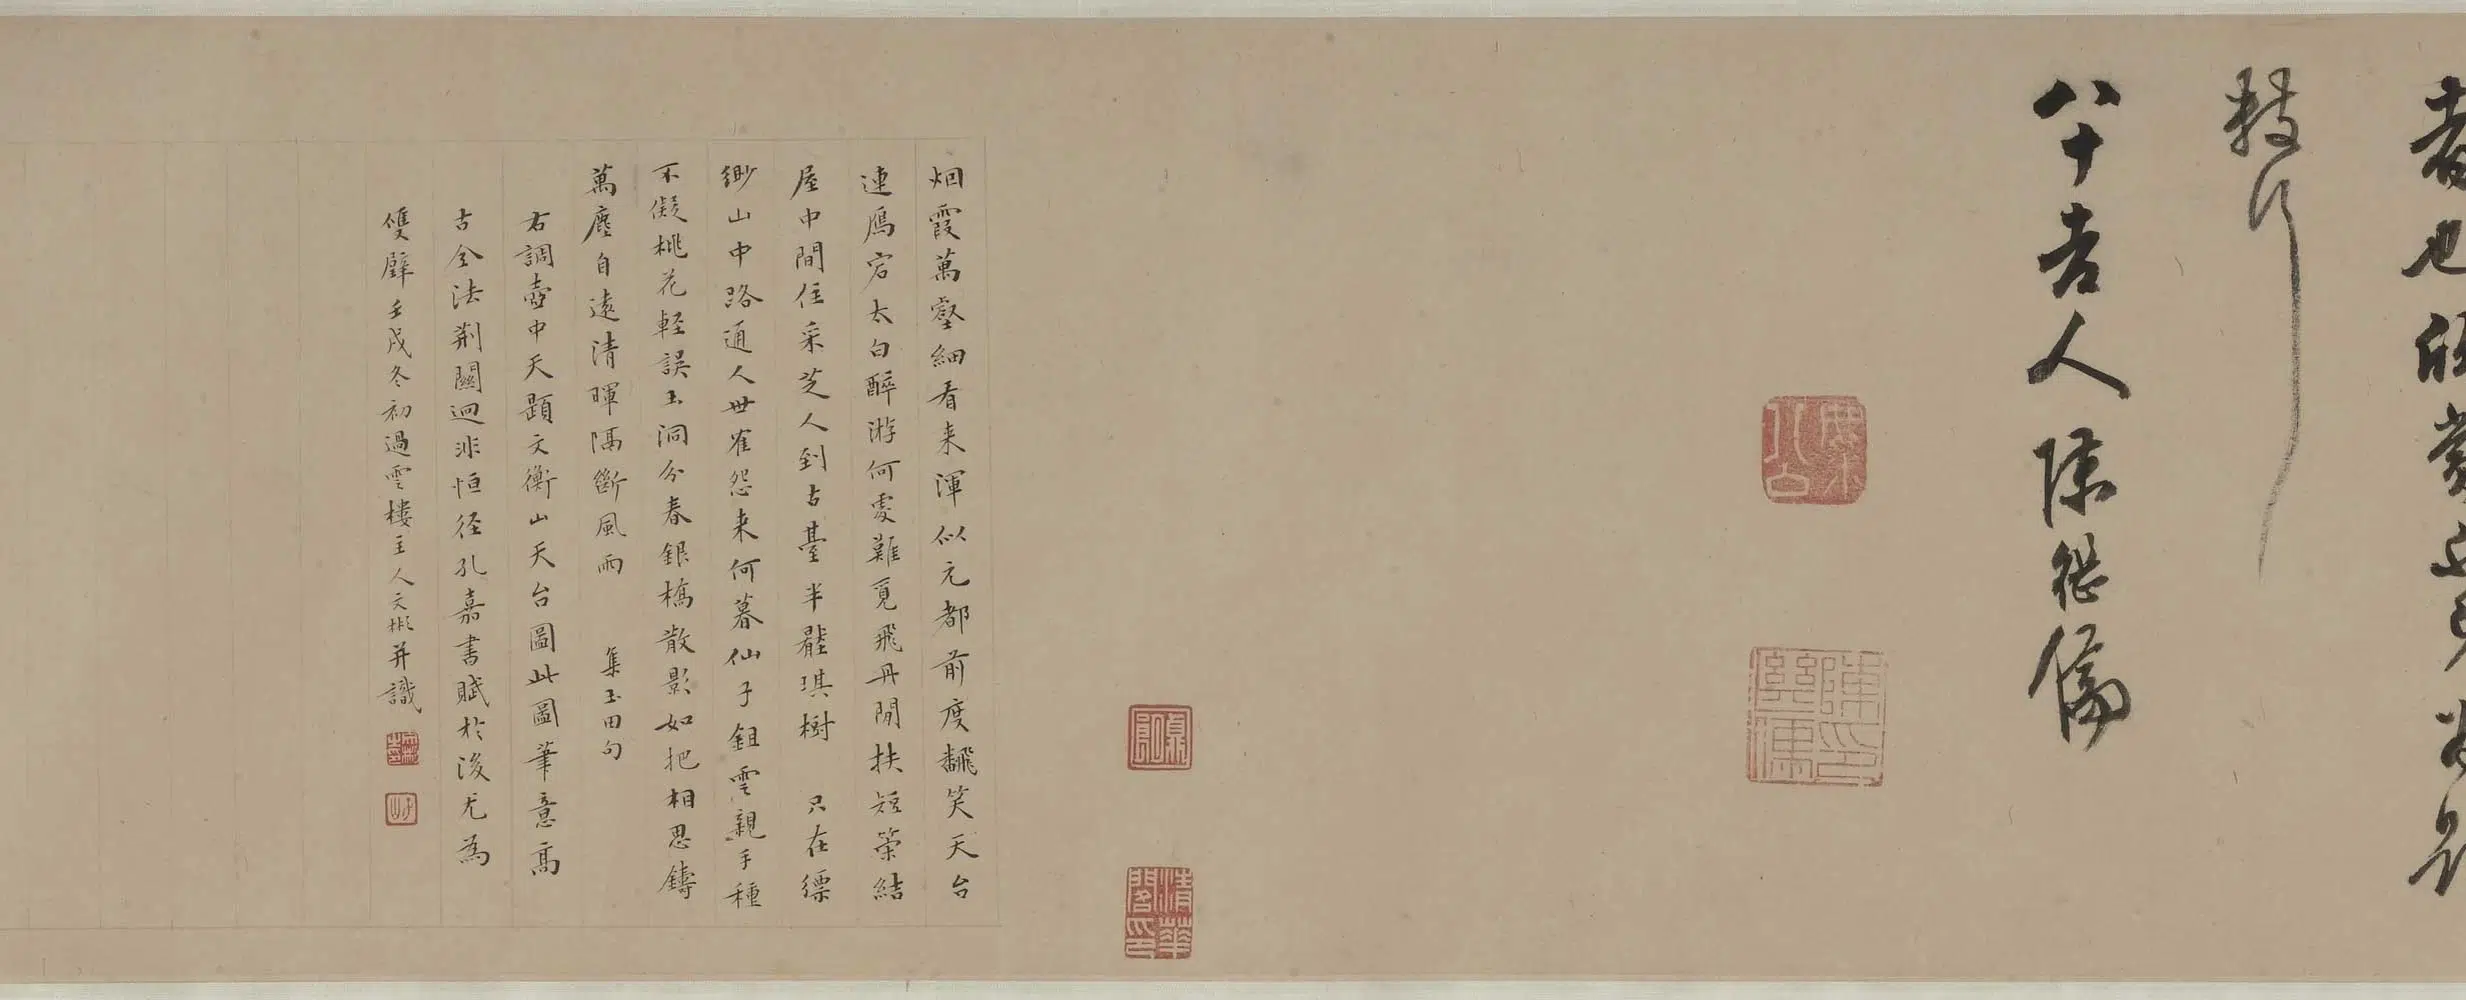 者也
八十吉人陳繼儒
烟霞萬壑細看来渾似元都前度飜笑天台
連鴈宕太白醉游何處難覓飛丹閒扶短筞結
屋中間住采芝人到古臺半龗琪樹　只在縹
緲山中路通人世崔怨来何暮仙子鉏雲親手種
不礙桃花輕誤玉洞分春銀橋散影如把相思鑄
萬塵自遠清暉隔斷風雨　集玉田句
右調壺中天題文衡山天台圖此圖筆意高
古全法荊關迥非恒径孔嘉書賦於後尤為
雙璧壬戌冬初過雲樓主人文彬并識
清華閣印